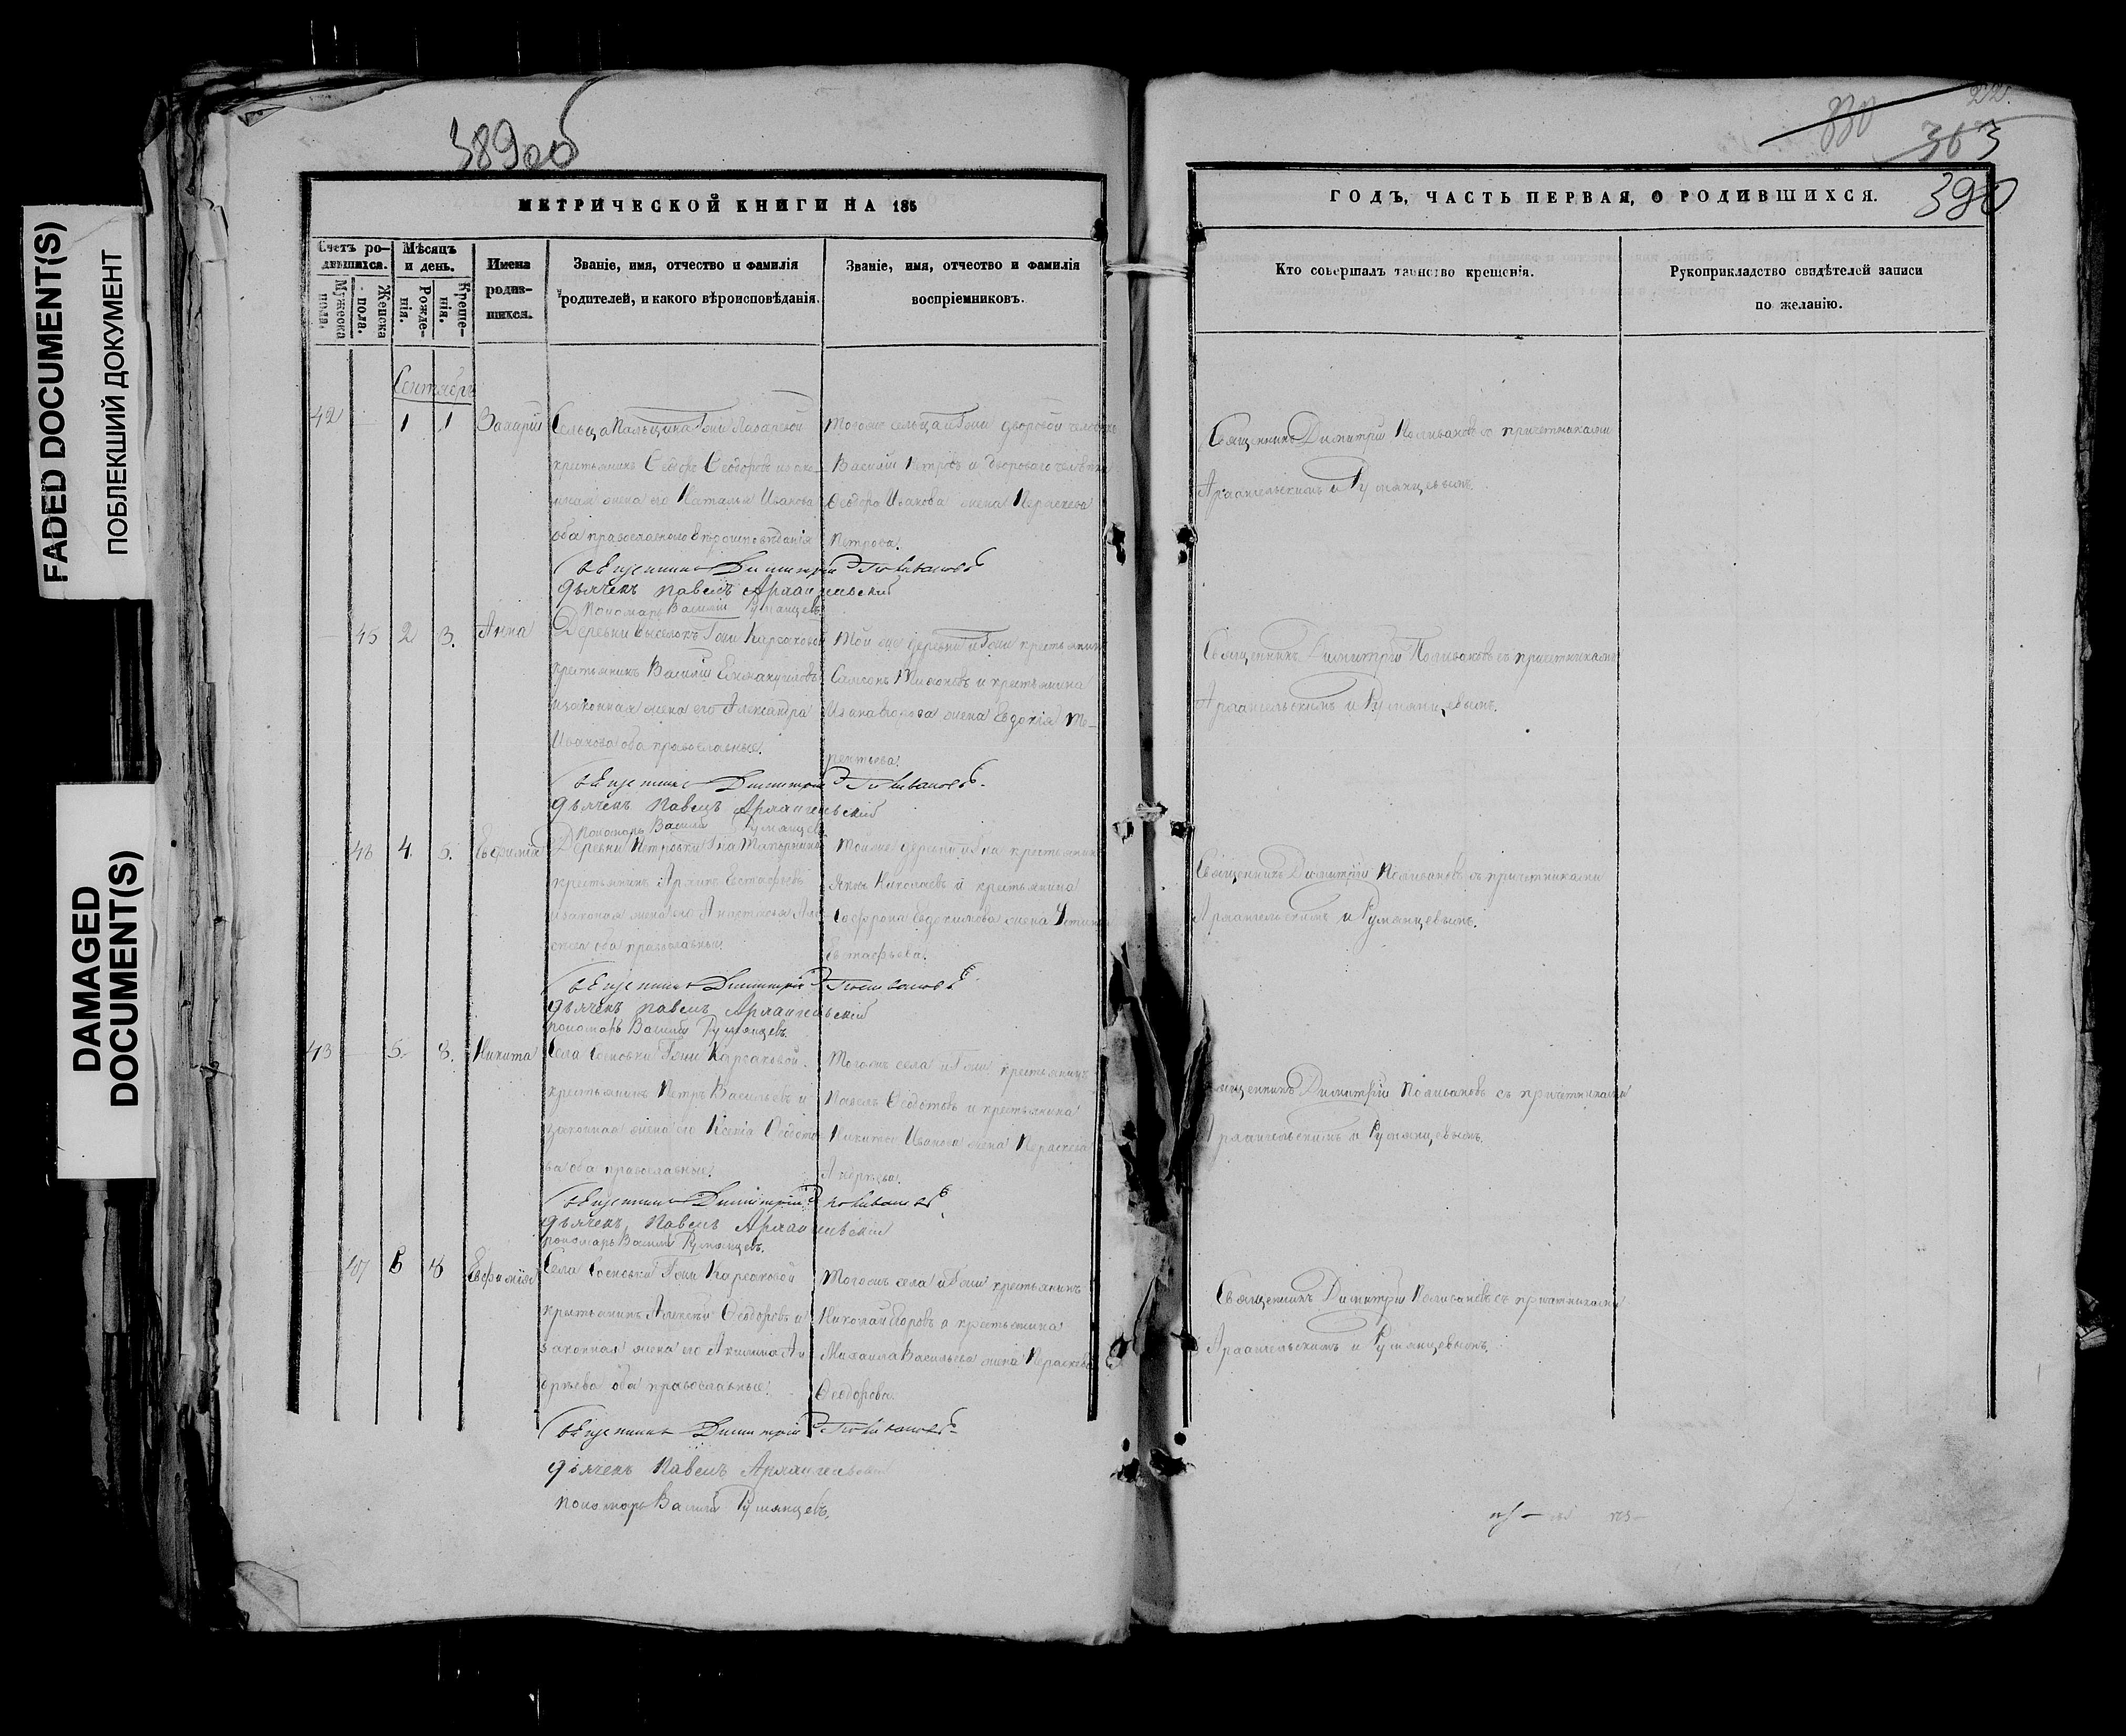 FADED DOCUMENT(S)
ПОБЛЕКШИЙ ДОКУМЕНТ
DAMAGED
DOCUMENT(S)
389об
МЕТРИЧЕСКОЙ КНИГИ НА 185
Счетъ ро-
дившихся.
Мужеска
пола.
Женска
пола.
Мѣсяцъ
и день.
Рожде-
нія.
Креще-
нія.
Имена
родив-
шихся.
Званіе, имя, отчество и фамилія
родителей, и какого вѣроисповѣданія.
Званіе, имя, отчество и фамилія
воспріемниковъ.
Сентябрь
42 1 1 Захарій
Сельца Пальцина Гжи Лазаревой
крестьянинъ Ѳедоръ Ѳеодоровъ и зако-
нная жена его Наталья Иванова
оба православнаго вѣроисповѣданія
Тогоже сельца и Гжи дворовой человѣкъ
Василій Петровъ и двороваго человѣка
Ѳеодора Иванова жена Параскева
Петрова.
Священникъ Димитрій Поливановъ
Дьячекъ Павелъ Архангельскій
Пономарь Василій Румянцевъ
45 2 3. Анна
Деревни Выселокъ Гжи Карсаковой
крестьянинъ Василій Еммануиловъ
и законная жена его Александра
Иванова оба православные.
Той же деревни и Гжи крестьянинъ
Самсонъ и крестьянина
жена Евдокія Те-
рентьева.
Священникъ Димитрій Поливановъ
Дьячекъ Павелъ Архангельскій
Пономарь Василій Румянцевъ
46 4. 5. Евфимія
Деревни Петровки Гна
крестьянинъ Архипъ Евстафьевъ
и законная жена его Анастасья
оба православные
Той же деревни и Гна крестьянинъ
Яковъ Николаевъ и крестьянина
Софрона Евдокимова жена Устинья
Евстафьева.
Священникъ Димитрій Поливановъ
Дьячекъ Павелъ Архангельскій
Пономарь Василій Румянцевъ.
43 5. 8. Никита
Села Сосновки Гжи Карсаковой
крестьянинъ Петръ Васильевъ и
законная жена его Ксенія Ѳеодото-
ва оба православные.
Тогожъ села и Гжи крестьянинъ
Павелъ Ѳеодотовъ и крестьянина
Никиты Иванова жена Параскева
Андреева.
Священникъ Димитрій Поливановъ
Дьячекъ Павелъ Архангельскій
Пономарь Василій Румянцевъ.
47 6 8 Евфимія
Села Сосновки Гжи Карсаковой
крестьянинъ Алексѣй Ѳеодоровъ и
законная жена его Акилина Ан-
дреева оба православные.
Тогожъ села и Гжи крестьянинъ
Николай Егоровъ и крестьянина
Михаила Васильева жена Параскева
Ѳеодорова.
Священникъ Димитрій Поливановъ
Дьячекъ Павелъ Архангельскій
Пономарь Василій Румянцевъ.
363
390
ГОДЪ, ЧАСТЬ ПЕРВАЯ, О РОДИВШИХСЯ.
Кто совершалъ таинство крещенія.
Рукоприкладство свидѣтелей записи
по желанію.
Священникъ Димитрій Поливановъ съ причетниками
Архангельскимъ и Румянцевымъ.
Священникъ Димитрій Поливановъ съ причетниками
Архангельскимъ и Румянцевымъ.
Священникъ Димитрій Поливановъ съ причетниками
Архангельскимъ и Румянцевымъ.
Священникъ Димитрій Поливановъ съ причетниками
Архангельскимъ и Румянцевымъ.
Священникъ Димитрій Поливановъ съ причетниками
Архангельскимъ и Румянцевымъ.